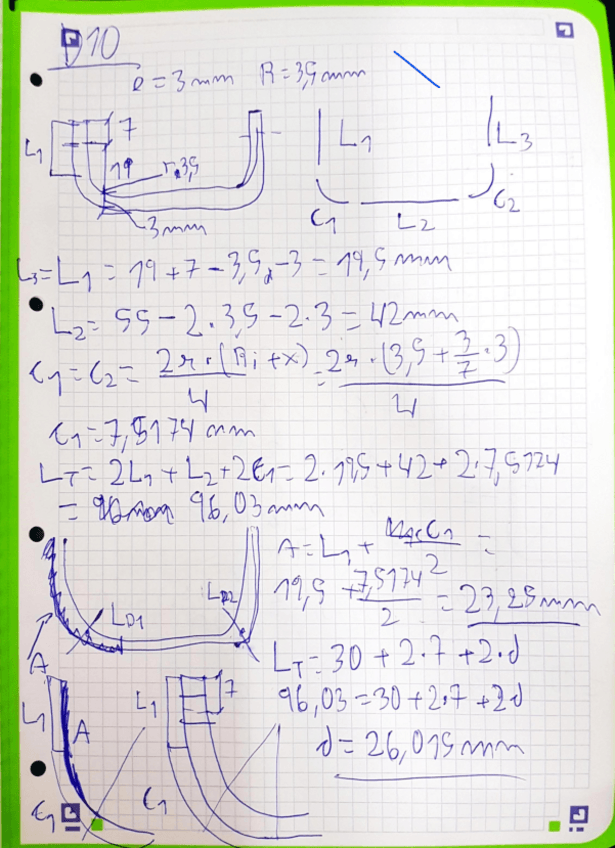 D10
e = 3mm R = 3,5mm
L1 7 19 r.3,5 3mm
L1 L3
C1 L2 C2
L3 = L1 = 19 + 7 - 3,5 - 3 = 19,5 mm
L2 = 55 - 2.3,5 - 2.3 = 42mm
C1 = C2 = 2π.(Ri + x)/4 = 2π.(3,5 + 3/7.3)/4
C1 = 7,5174 mm
LT = 2L1 + L2 + 2C1 = 2.19,5 + 42 + 2.7,5174
= 96,03 mm
A = L1 + C1/2 =
19,5 + 7,5174/2 = 23,25mm
LD1 LD2
A
LT = 30 + 2.7 + 2.d
96,03 = 30 + 2.7 + 2d
d = 26,015mm
L1 A C1
L1 7 C1